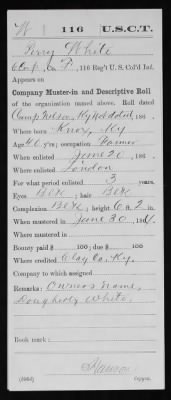 W | 116 | U.S.C.T.
Perry White
Co. F, 116 Reg't U. S. Col'd Inf.
Appears on
Company Muster-in and Descriptive Roll
of the organization named above. Roll dated
Camp Nelson, Ky 186 .
Where born Knox, Ky
Age 40 y'rs; occupation Farmer
When enlisted June 20, 186 .
Where enlisted London
For what period enlisted 3 years.
Eyes Blk; hair Blk
Complexion Blk; height 6 ft. 2 in.
When mustered in June 30, 1864.
Where mustered in
Bounty paid $ 100 ; due $ 100
Where credited Clay Co. Ky.
Company to which assigned
Remarks: Owners name,
White.
Book mark:
Copyist.